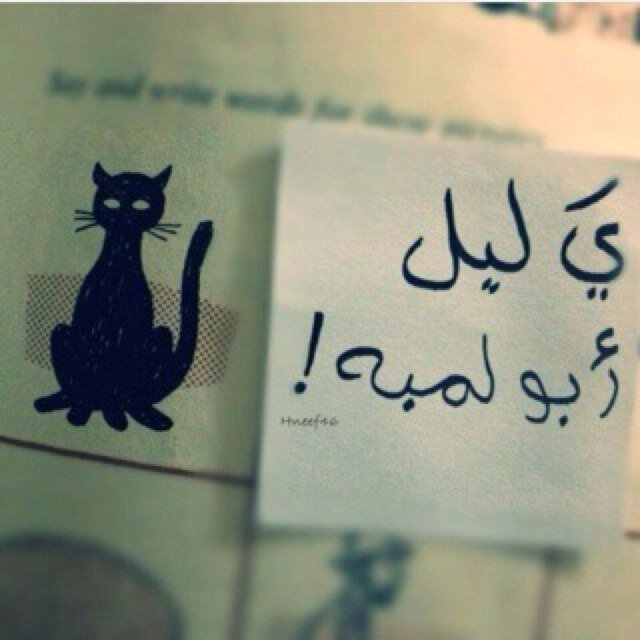 Say and write words for these pictures
يَ ليل
أبو لمبه !
Hneef46